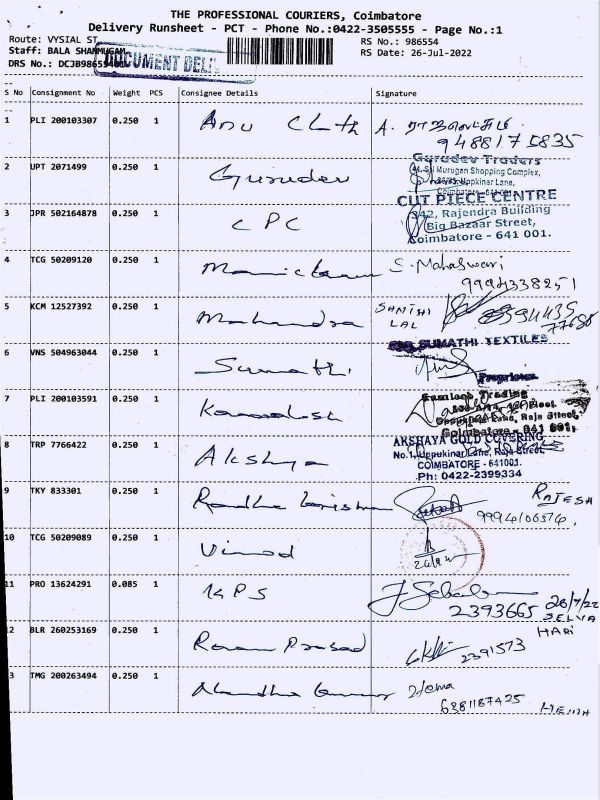 THE PROFESSIONAL COURIERS, Coimbatore
Delivery Runsheet - PCT - Phone No.:0422-3505555 - Page No.:1
Route: VYSIAL ST
RS No.: 986554
Staff: BALA SHANMUGAM
RS Date: 26-Jul-2022
DRS No.:
DOCUMENT
S No Consignment No Weight PCS Consignee Details Signature
1 PLI 200103307 0.250 1 Anu Cloth A. ராஜலட்சுமி
9488175835
2 UPT 2071499 0.250 1 Gurudev
Gurudev Traders
Murugan Shopping Complex,
Uppkinar Lane,
Coimbatore - 641 001.
3 JPR 502164878 0.250 1 CPC
CUT PIECE CENTRE
342, Rajendra Building
Big Bazaar Street,
Coimbatore - 641 001.
4 TCG 50209120 0.250 1 S. Maheswari
9994338251
5 KCM 12527392 0.250 1 Mahendra
LAL
77686
6 VNS 504963044 0.250 1 Sumathi
SUMATHI TEXTILES
Proprietor
7 PLI 200103591 0.250 1 Kamalesh
Trading
Raja Street,
Coimbatore - 641 001.
8 TRP 7766422 0.250 1 Akshya
AKSHAYA GOLD COVERING
No.1, Uppukinar Lane, Raja Street,
COIMBATORE - 641001.
Ph: 0422-2399334
9 TKY 833301 0.250 1 Radha Krishna RAJESH
10 TCG 50209089 0.250 1 Vinod
11 PRO 13624291 0.085 1 KPS
2393665 26/7/22
SELVA
HARI
12 BLR 260253169 0.250 1 Ram Prasad 2391573
13 TMG 200263494 0.250 1 Nandha Kumar Hema
6381187425